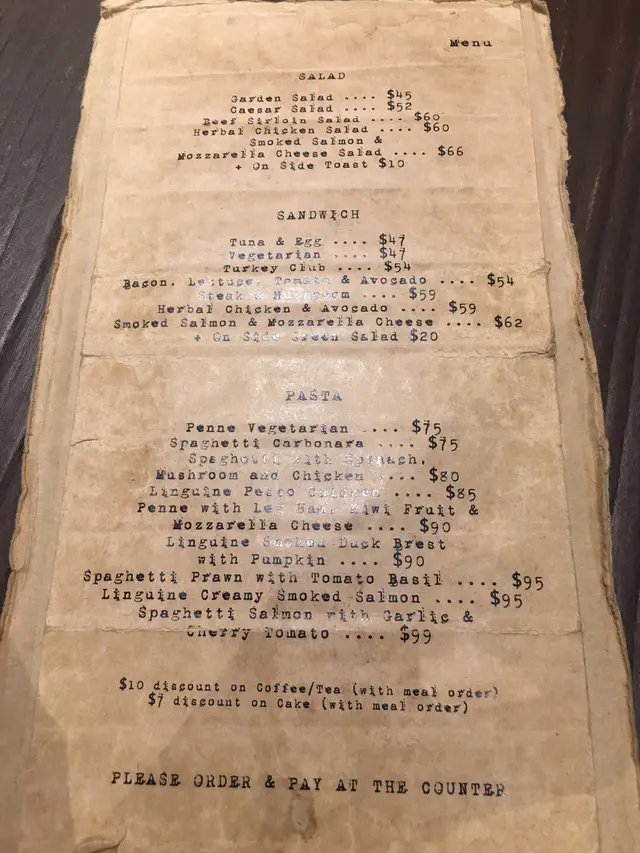 Menu
SALAD
Garden Salad .... $45
Caesar Salad .... $52
Beef Sirloin Salad .... $60
Herbal Chicken Salad .... $60
Smoked Salmon &
Mozzarella Cheese Salad .... $66
+ On Side Toast $10
SANDWICH
Tuna & Egg .... $47
Vegetarian .... $47
Turkey Club .... $54
Bacon, Lettuce, Tomato & Avocado .... $54
Steak & Mushroom .... $59
Herbal Chicken & Avocado .... $59
Smoked Salmon & Mozzarella Cheese .... $62
+ On Side Green Salad $20
PASTA
Penne Vegetarian .... $75
Spaghetti Carbonara .... $75
Spaghetti with Spinach,
Mushroom and Chicken .... $80
Linguine Pesto Chicken .... $85
Penne with Leg Ham, Kiwi Fruit &
Mozzarella Cheese .... $90
Linguine Smoked Duck Brest
with Pumpkin .... $90
Spaghetti Prawn with Tomato Basil .... $95
Linguine Creamy Smoked Salmon .... $95
Spaghetti Salmon with Garlic &
Cherry Tomato .... $99
$10 discount on Coffee/Tea (with meal order)
$7 discount on Cake (with meal order)
PLEASE ORDER & PAY AT THE COUNTER